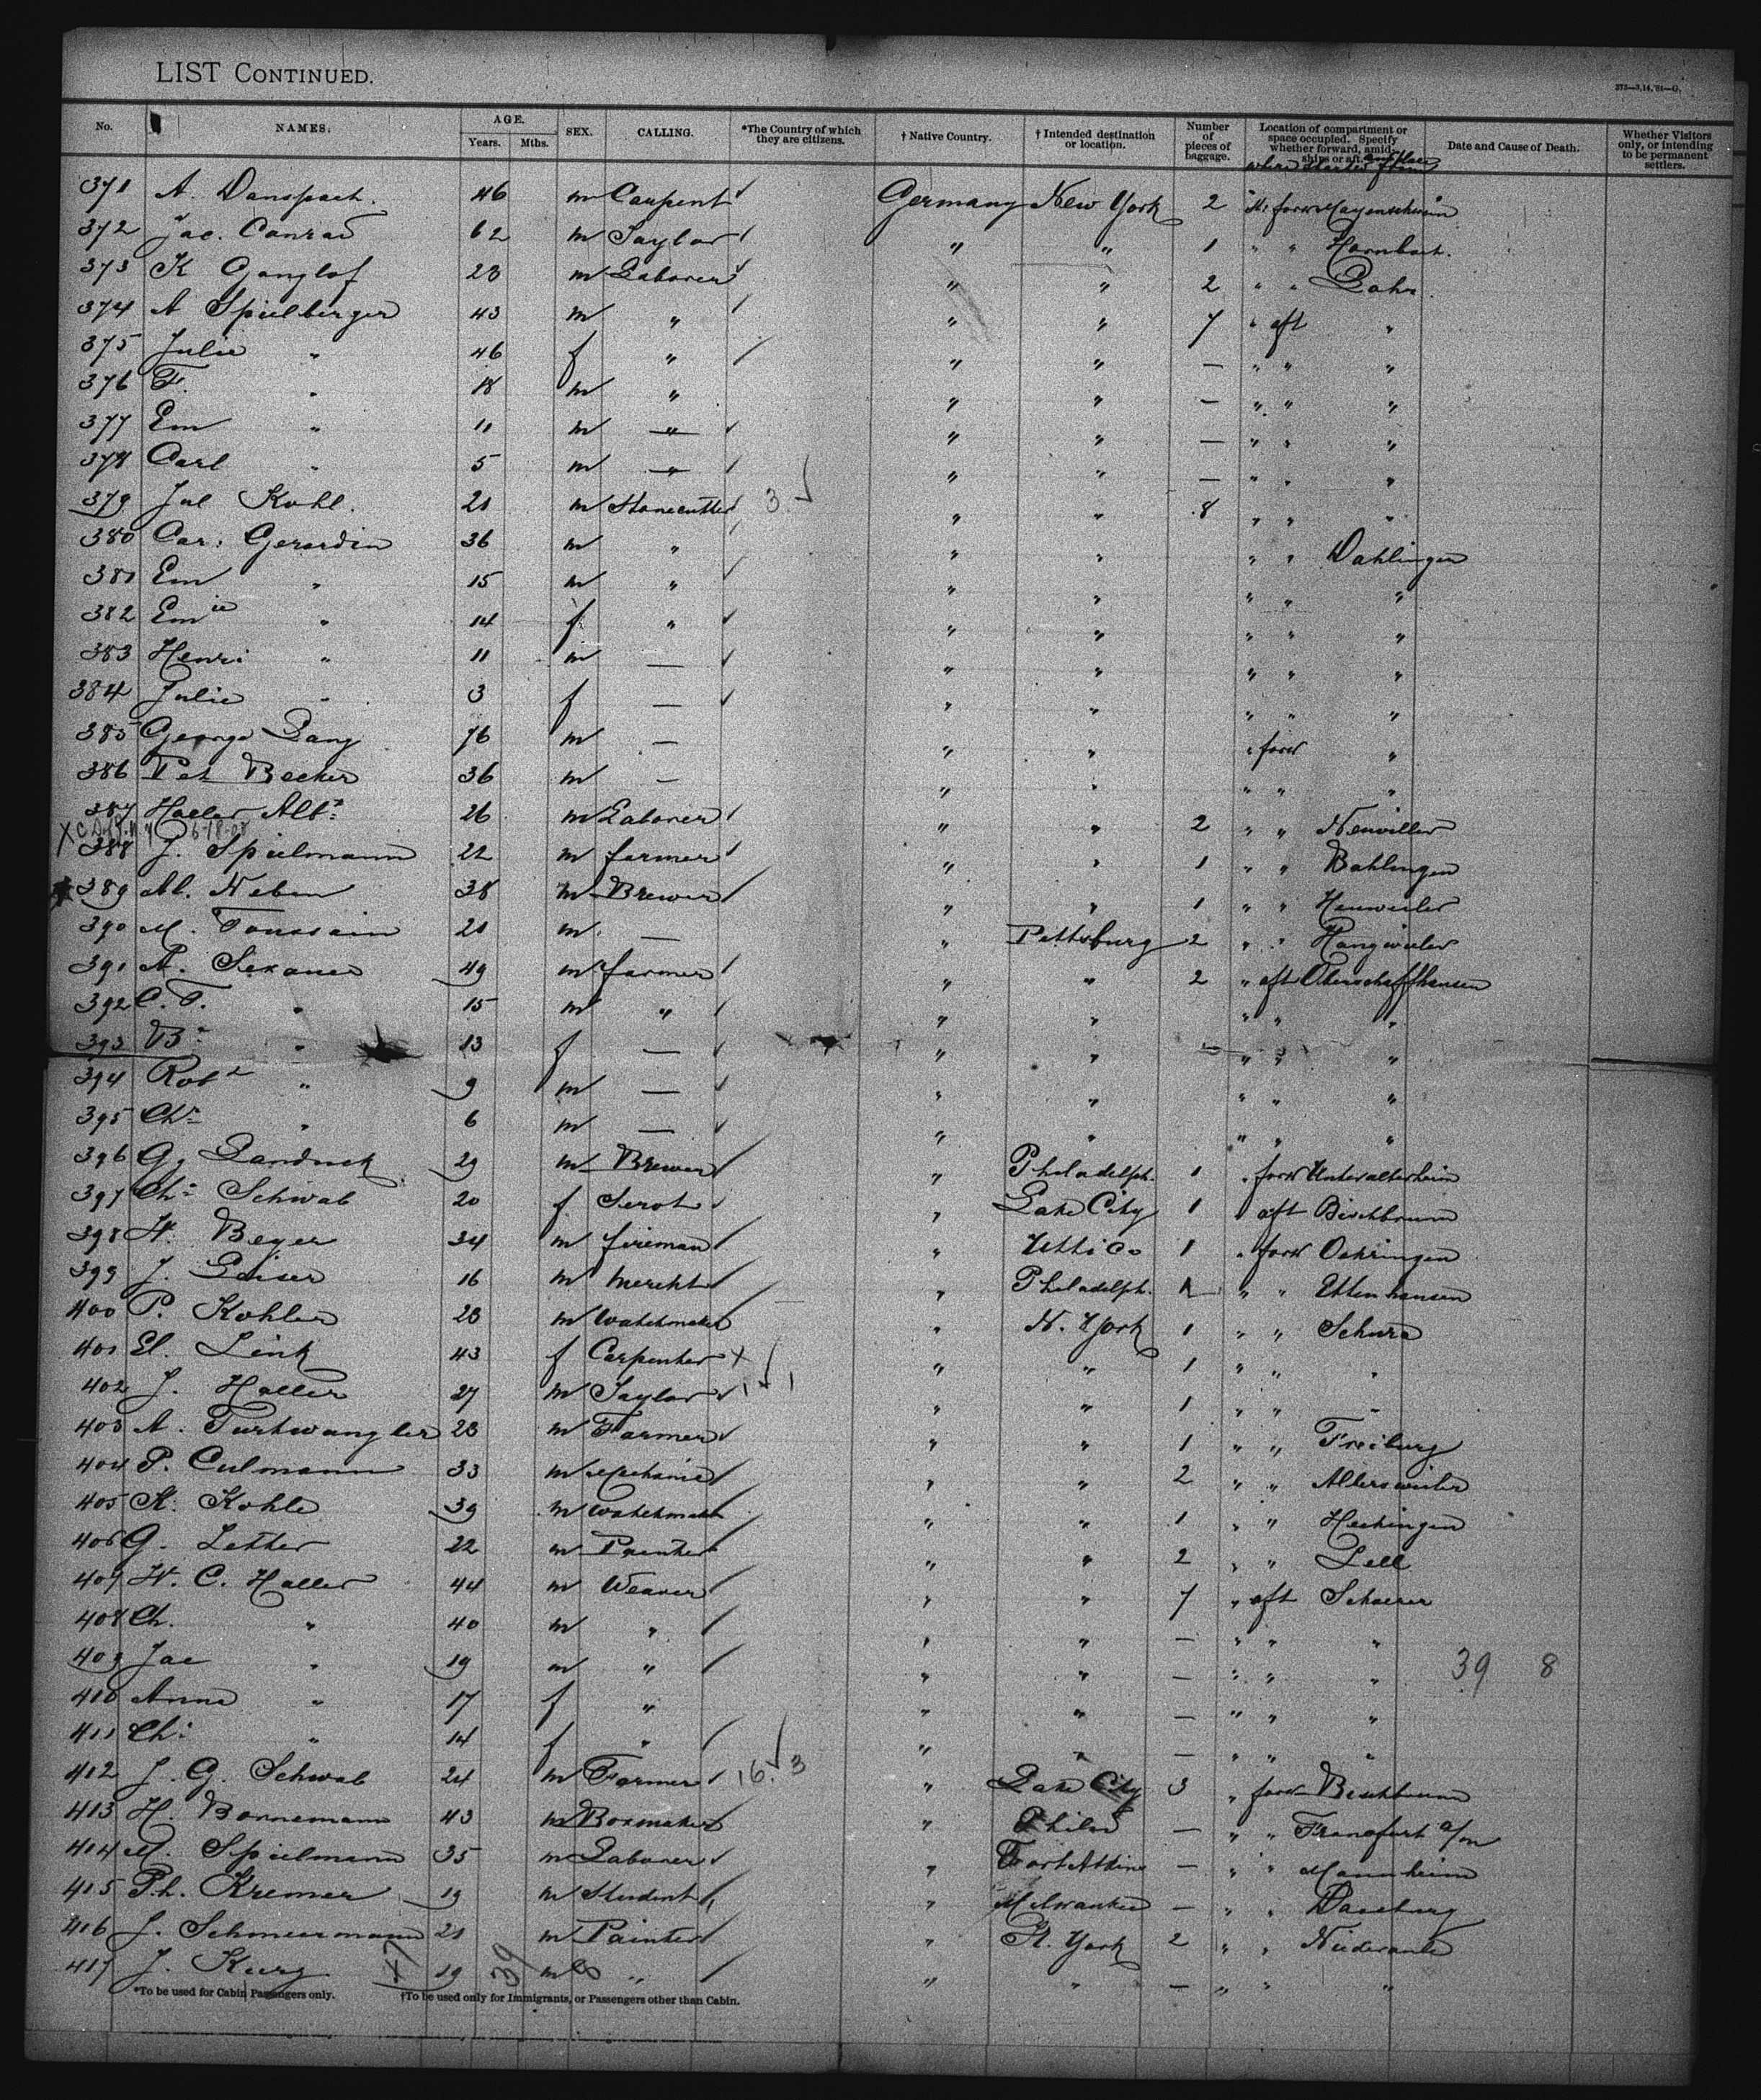 LIST CONTINUED.
373—3,14,'81—G.
No. NAMES. AGE. Years. Mths. SEX. CALLING. *The Country of which they are citizens. † Native Country. † Intended destination or location. Number of pieces of baggage. Location of compartment or space occupied. Specify whether forward, amidships or aft. Date and Cause of Death. Whether Visitors only, or intending to be permanent settlers.
where started from
371 A. Danspach. 46 m Carpent Germany New York 2 forw
372 Jac. Conrad 62 m Taylor " " 1 " " Hornbach.
373 K Ganglof 23 m Laborer " " 2 " " Lahr
374 A Spielberger 43 m " " " 7 " aft "
375 Julie " 46 f " " " — " " "
376 F. " 18 m " " " — " " "
377 Em " 11 m —"— " " — " " "
378 Carl " 5 m —"— " " — " " "
379 Jul Kohl. 21 m Stonecutter 3 " " 8 " " "
380 Car: Gerardin 36 m " " " " " Dahlingen
381 Em " 15 m " " " " " "
382 Emie " 14 f " " " " " "
383 Henri " 11 m — " " " " "
384 Julie " 3 f — " " " " "
385 George Lang 76 m — " " " forw "
386 Pet Becker 36 m — " " " " "
387 Haller Albt 26 m Laborer " " 2 " " Neuviller
6-18-08
388 J. Spielmann 22 m farmer " " 1 " " Bahlingen
389 Al. Neben 38 m Brewer " " 1 " " Henweiler
390 M. Toussain 21 m. — " Pettsburg 2 " " Hangweiler
391 A. Sexauer 49 m farmer " " 2 " aft Oberschaffhausen
392 C. F. " 15 m " " " " " "
393 B. " 13 f — " " — " " "
394 Robt " 9 m — " " " " "
395 Chr " 6 m — " " " " "
396 G. Landeck 29 m Brewer " Philadelph. 1 " forw Unteralterheim
397 Ch: Schwab 20 f Servt " Lake City 1 " aft Bischbrunn
398 H. Beyer 34 m fireman " Uttica 1 " forw Oehringen
399 J. Leiser 16 m mercht " Philadelph. " " Ettenhausen
400 P. Kohler 23 m Watchmaker " N. York 1 " " Schura
401 El. Link 43 f Carpenter " " 1 " " "
402 J. Haller 27 m Taylor " " 1 " " "
403 A. Furtwangler 23 m Farmer " " 1 " " Freiburg
404 P. Culmann 33 m Mechanic " " 2 " " Albersweiler
405 K. Kohle 39 m Watchmakr " " 1 " " Hechingen
406 G. Letter 22 m Painter " " 2 " " Zell
407 H. C. Haller 44 m Weaver " " 7 " aft Schwerer
408 Ch. " 40 m " " " — " " "
409 Jac " 19 m " " " — " " " 39 8
410 Anna " 17 f " " " — " " "
411 Ch: " 14 f " " " — " " "
412 J. G. Schwab 24 m Farmer 16. 3 " Lake City 3 " forw Bischbrunn
413 H. Bornemann 43 m Boxmaker " Philad — " " Francfurt a/m
414 M. Spielmann 35 m Laborer " Fort Atkins — " " Mannheim
415 Ph. Kremer 19 m Student " Milwaukee — " " Dasburg
416 J. Schmeermann 21 m Painter " N. York 2 " "
417 J. Kurz 19 m " " " — " " "
47 39
*To be used for Cabin Passengers only. †To be used only for Immigrants, or Passengers other than Cabin.